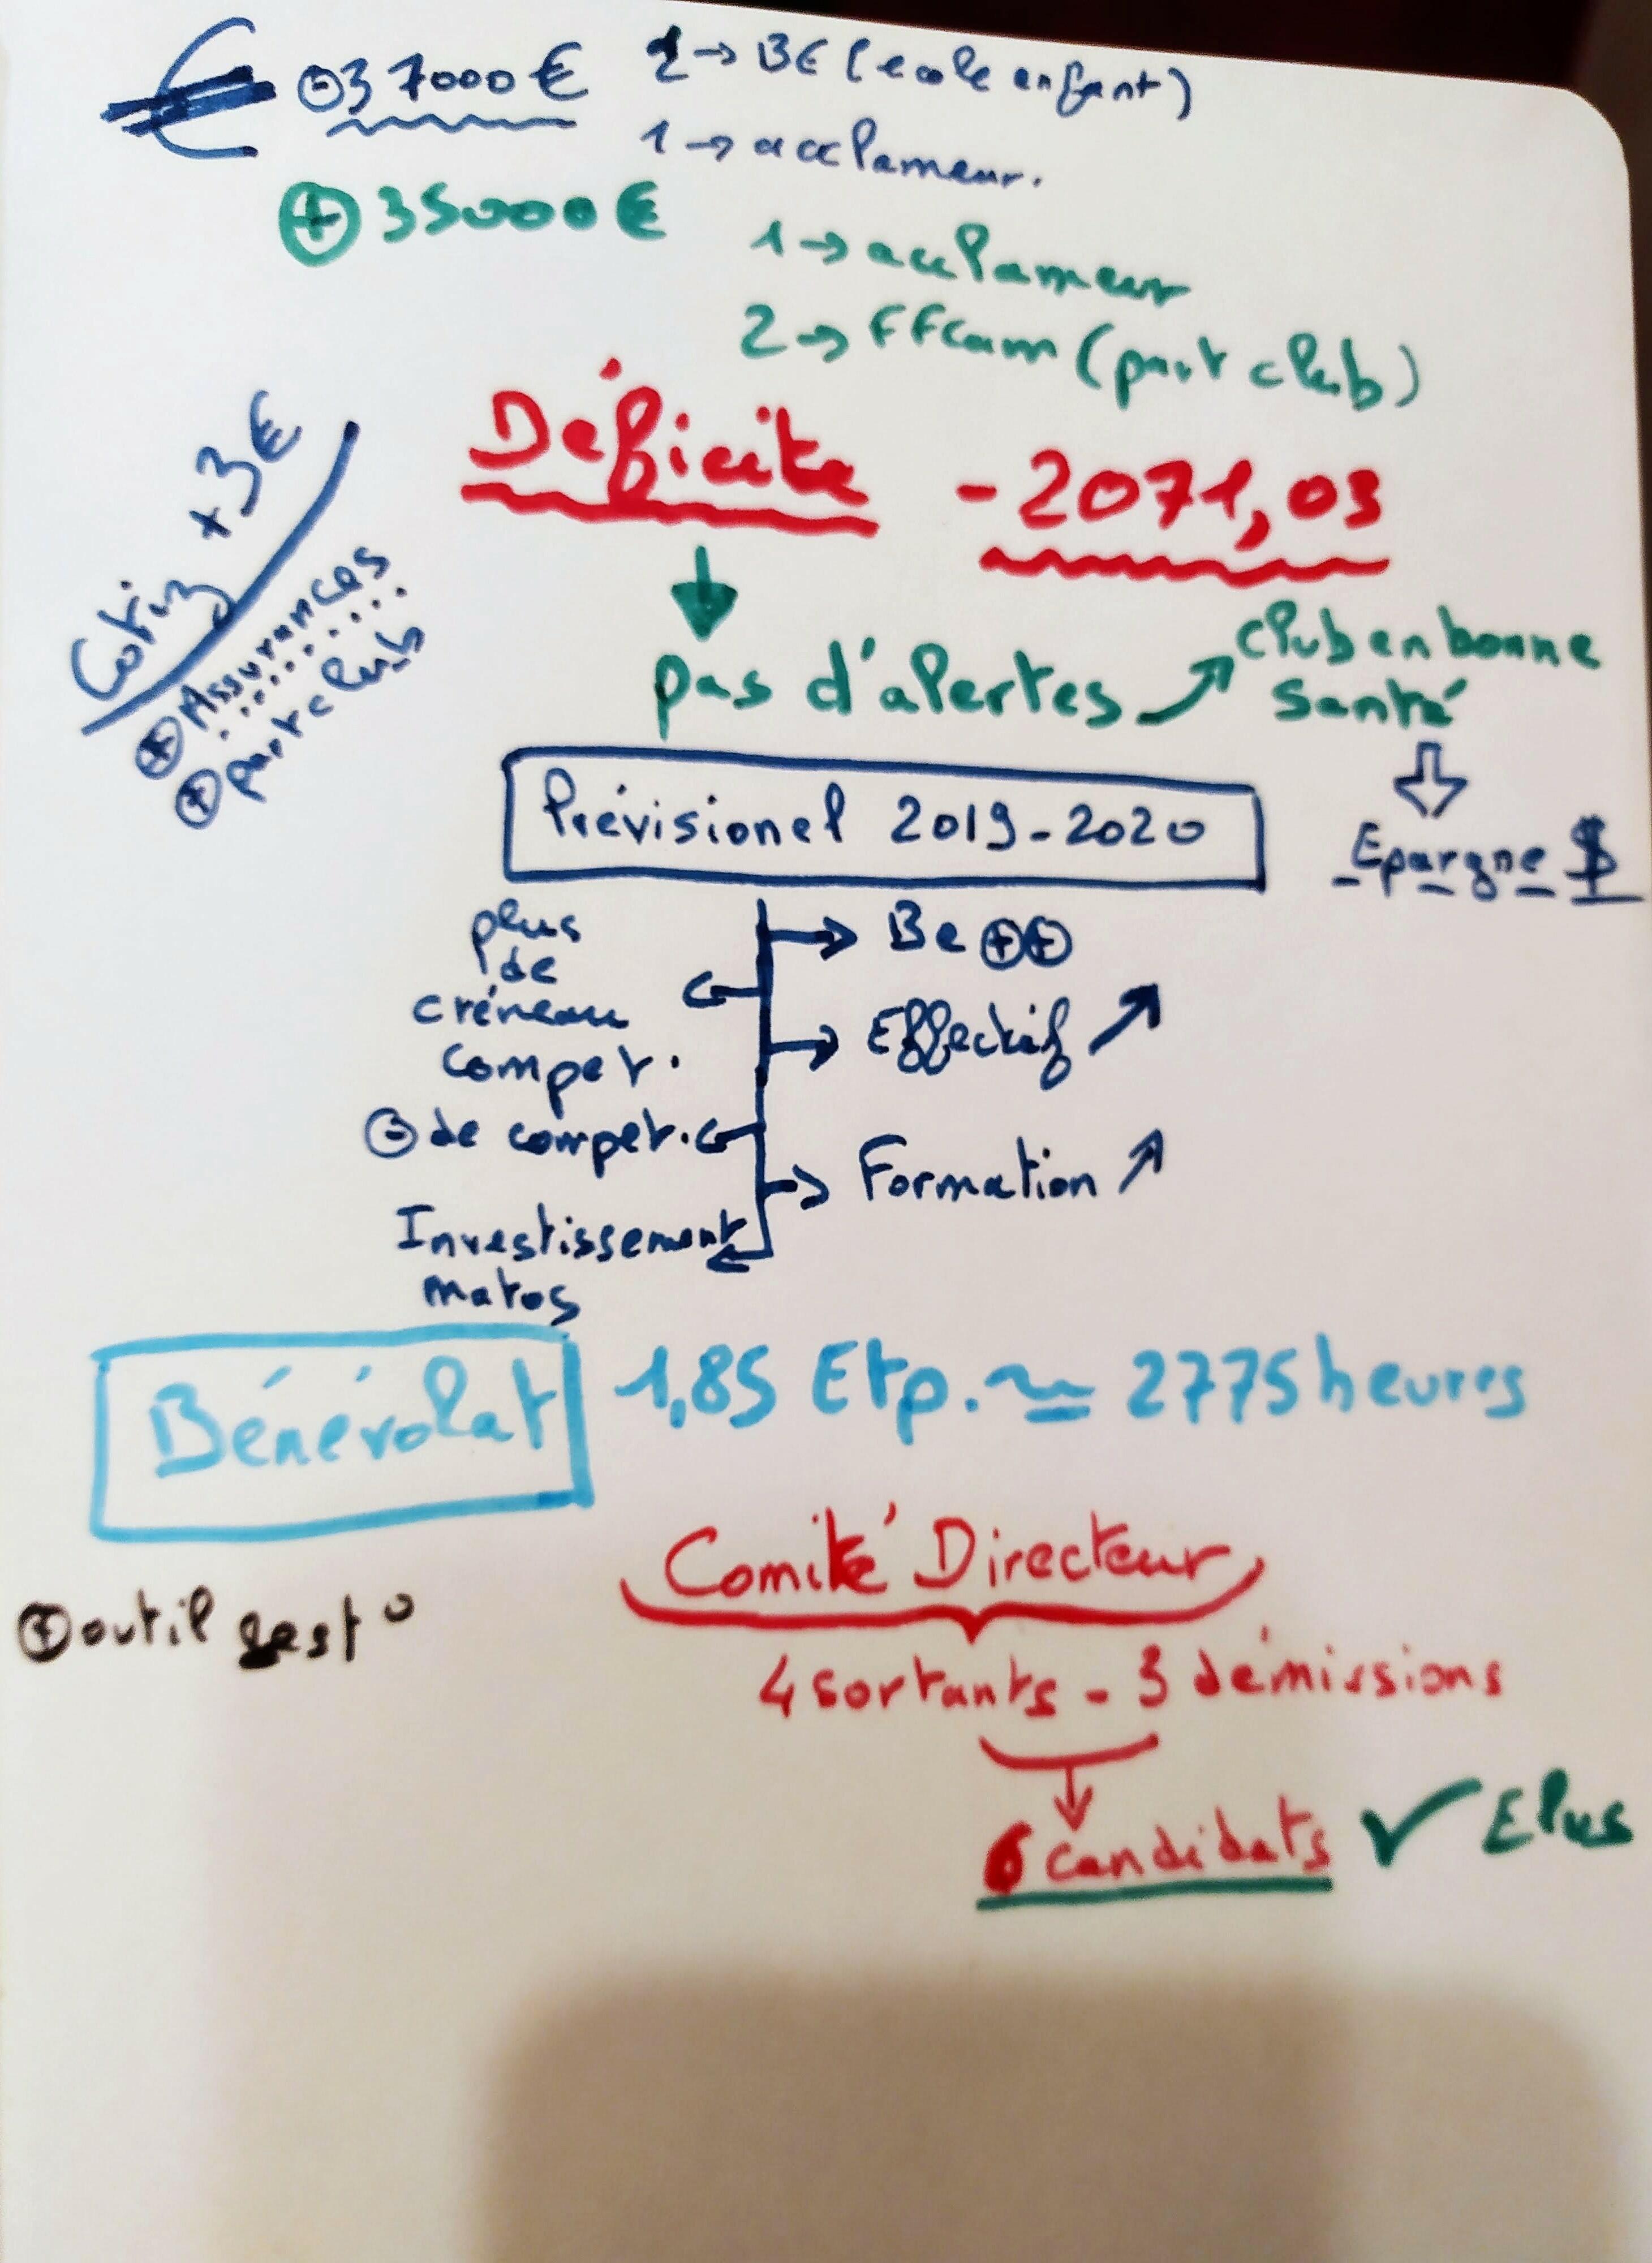 € ⊖37000€
2→ BE (ecole enfant)
1→ acclameur.
⊕ 35000€
1→ acclameur
2→ FFcam (part club)
Déficite -2071,03
Cotiz +3€
⊕ Assurances
⊕ part club
pas d'alertes
club en bonne
santé
Epargne $
Prévisionel 2019-2020
Be ⊕⊕
plus
de
créneau
compet.
Effectif ↗
⊖ de compet.
Formation ↗
Investissement
matos
Bénévolat 1,85 Etp. ≃ 2775 heures
Comité Directeur
⊕ outil gest°
4 sortants - 3 démissions
6 candidats ✓ Elus